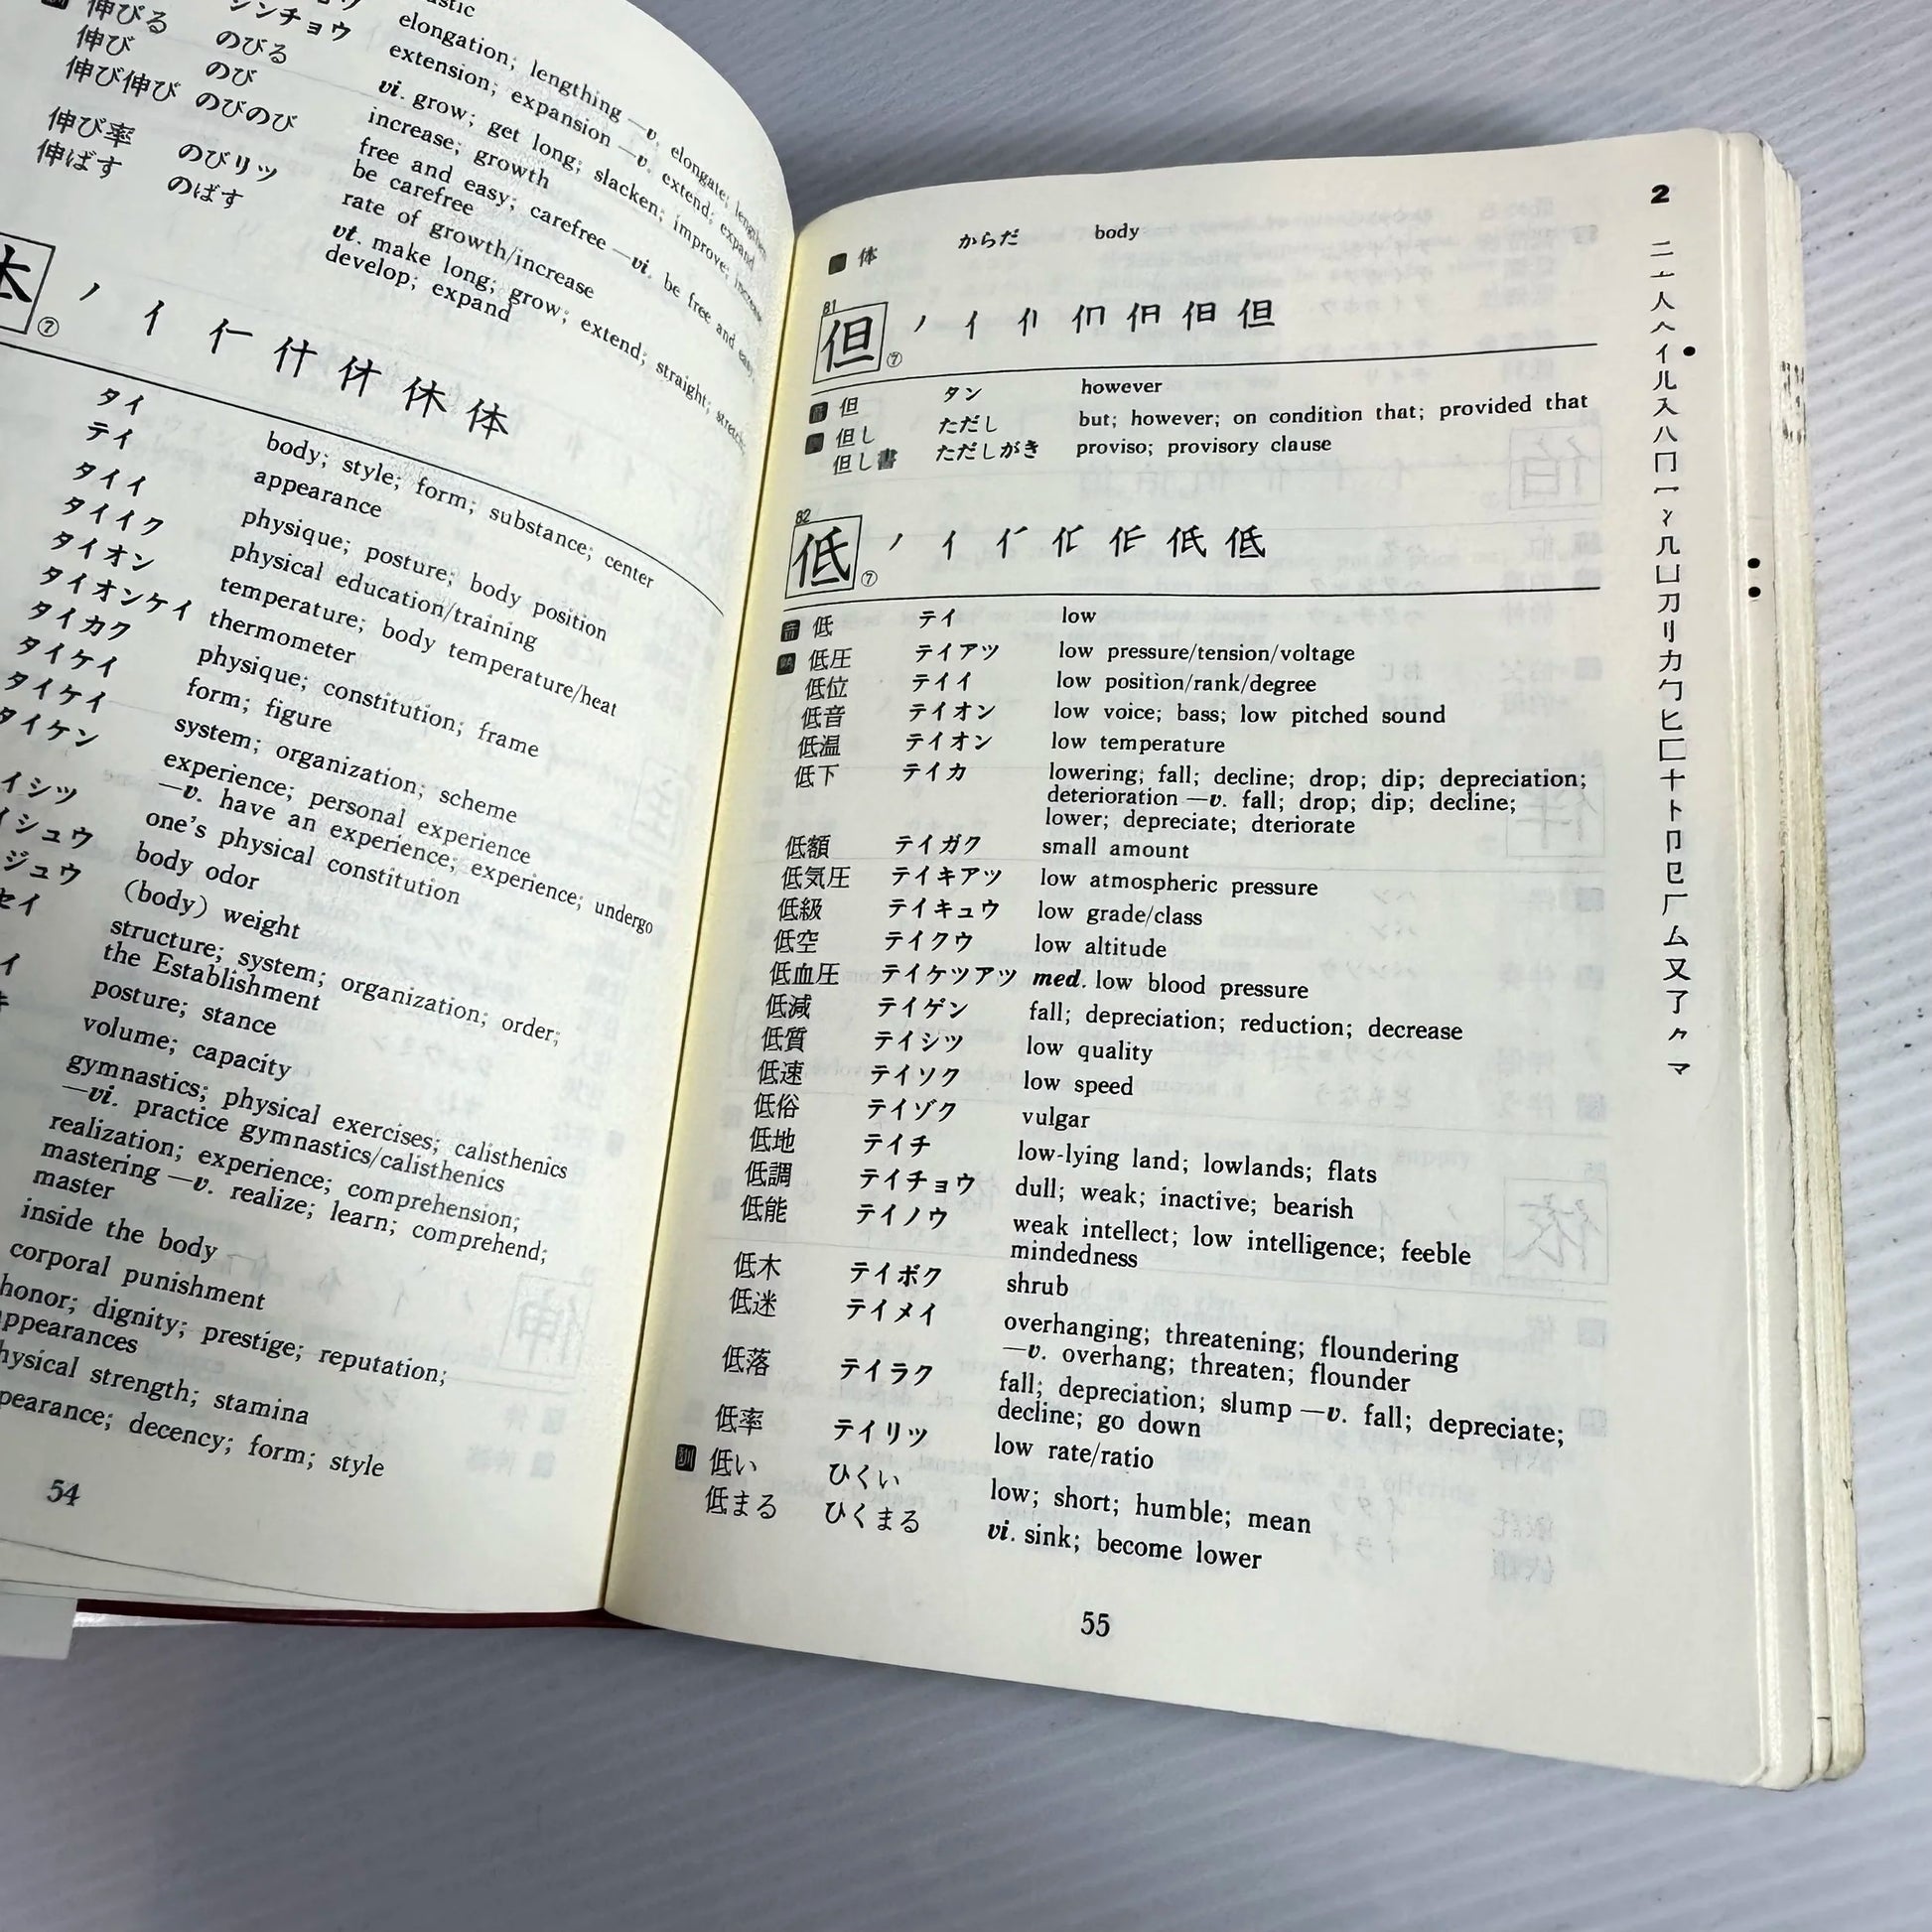 伸びる のびる
伸び のび
伸び伸び のびのび
伸び率 のびリツ
伸ばす のばす
シンチョウ
elongation; lengthing —v. elongate; lengthen
extension; expansion —v. extend; expand
vi. grow; get long; slacken; improve; increase
increase; growth
free and easy; carefree —vi. be free and easy;
be carefree
rate of growth/increase
vt. make long; grow; extend; straight; stretch;
develop; expand
体 ⑦ ノ イ 仁 什 休 体
タイ body; style; form; substance; center
テイ appearance
タイイ physique; posture; body position
タイイク physical education/training
タイオン temperature; body temperature/heat
タイオンケイ thermometer
タイカク physique; constitution; frame
タイケイ form; figure
タイケイ system; organization; scheme
タイケン experience; personal experience
—v. have an experience; experience; undergo
イシツ one's physical constitution
イシュウ body odor
ジュウ (body) weight
セイ structure; system; organization; order;
the Establishment
イ posture; stance
キ volume; capacity
gymnastics; physical exercises; calisthenics
—vi. practice gymnastics/calisthenics
realization; experience; comprehension;
mastering —v. realize; learn; comprehend;
master
inside the body
corporal punishment
honor; dignity; prestige; reputation;
ppearances
hysical strength; stamina
pearance; decency; form; style
54
体 からだ body
81
但 ⑦ 但
音 但 タン however
訓 但し ただし but; however; on condition that; provided that
但し書 ただしがき proviso; provisory clause
82
低 ⑦ 低
音 低 テイ low
熟 低圧 テイアツ low pressure/tension/voltage
低位 テイイ low position/rank/degree
低音 テイオン low voice; bass; low pitched sound
低温 テイオン low temperature
低下 テイカ lowering; fall; decline; drop; dip; depreciation;
deterioration —v. fall; drop; dip; decline;
lower; depreciate; dteriorate
低額 テイガク small amount
低気圧 テイキアツ low atmospheric pressure
低級 テイキュウ low grade/class
低空 テイクウ low altitude
低血圧 テイケツアツ med. low blood pressure
低減 テイゲン fall; depreciation; reduction; decrease
低質 テイシツ low quality
低速 テイソク low speed
低俗 テイゾク vulgar
低地 テイチ low-lying land; lowlands; flats
低調 テイチョウ dull; weak; inactive; bearish
低能 テイノウ weak intellect; low intelligence; feeble
mindedness
低木 テイボク shrub
低迷 テイメイ overhanging; threatening; floundering
—v. overhang; threaten; flounder
低落 テイラク fall; depreciation; slump —v. fall; depreciate;
decline; go down
低率 テイリツ low rate/ratio
訓 低い ひくい low; short; humble; mean
低まる ひくまる vi. sink; become lower
55
2
二
亠
人
𠆢
亻
儿
入
八
冂
冖
冫
几
凵
刀
刂
力
勹
匕
匚
十
卜
卩
㔾
厂
厶
又
了
ク
マ